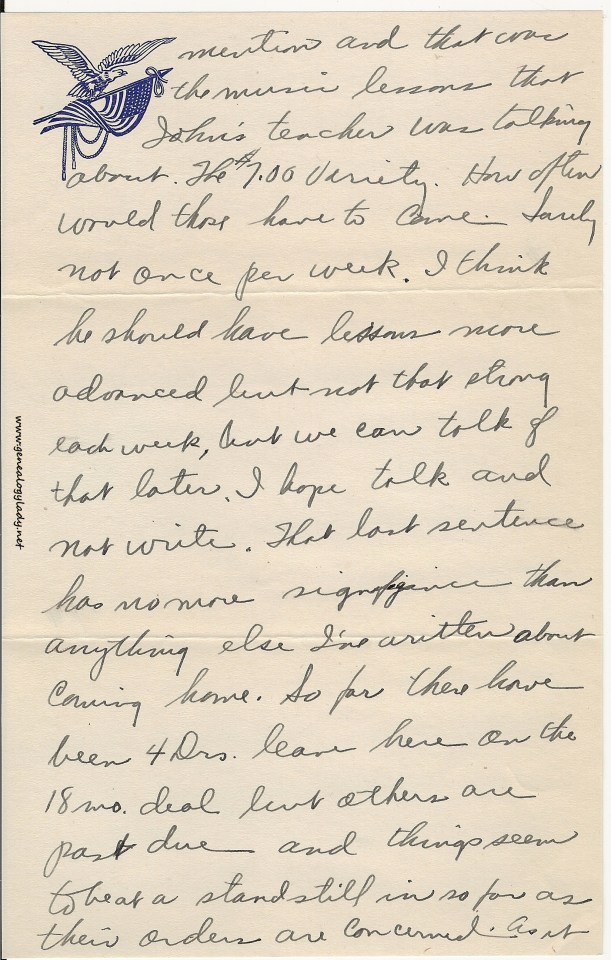 mention and that was
the music lessons that
John's teacher was talking
about. The $7.00 Variety. How often
would those have to come. Surely
not once per week. I think
he should have lessons more
advanced but not that strong
each week, but we can talk of
that later. I hope talk and
not write. That last sentence
has no more than
anything else I've written about
coming home. So far there have
been 4 Drs. leave here on the
18 mo. deal but others are
past due and things seem
to be at a standstill in so far as
their orders are concerned. As it
www.genealogylady.net